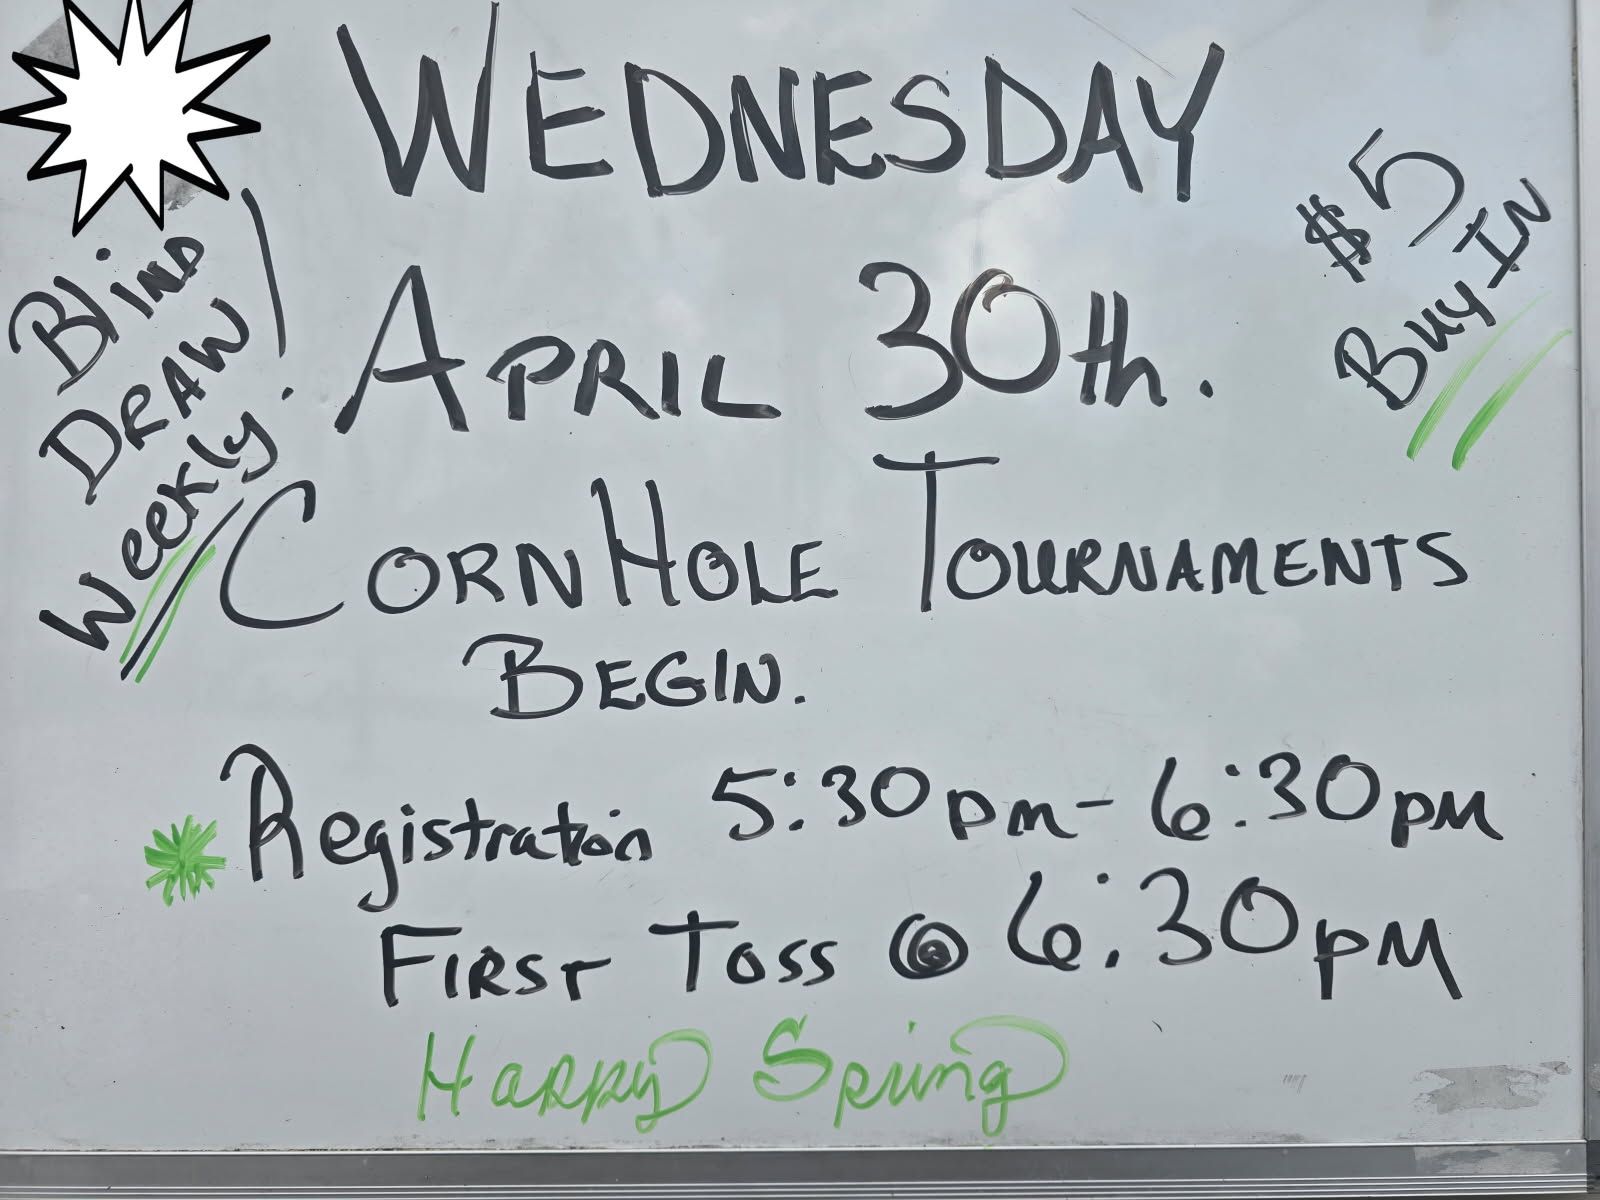 WEDNESDAY
APRIL 30th.
CORNHOLE TOURNAMENTS
BEGIN.
Registration 5:30pm - 6:30pm
FIRST TOSS @ 6:30pm
Happy Spring
BlIND
DRAW
Weekly!
$5
Buy-IN